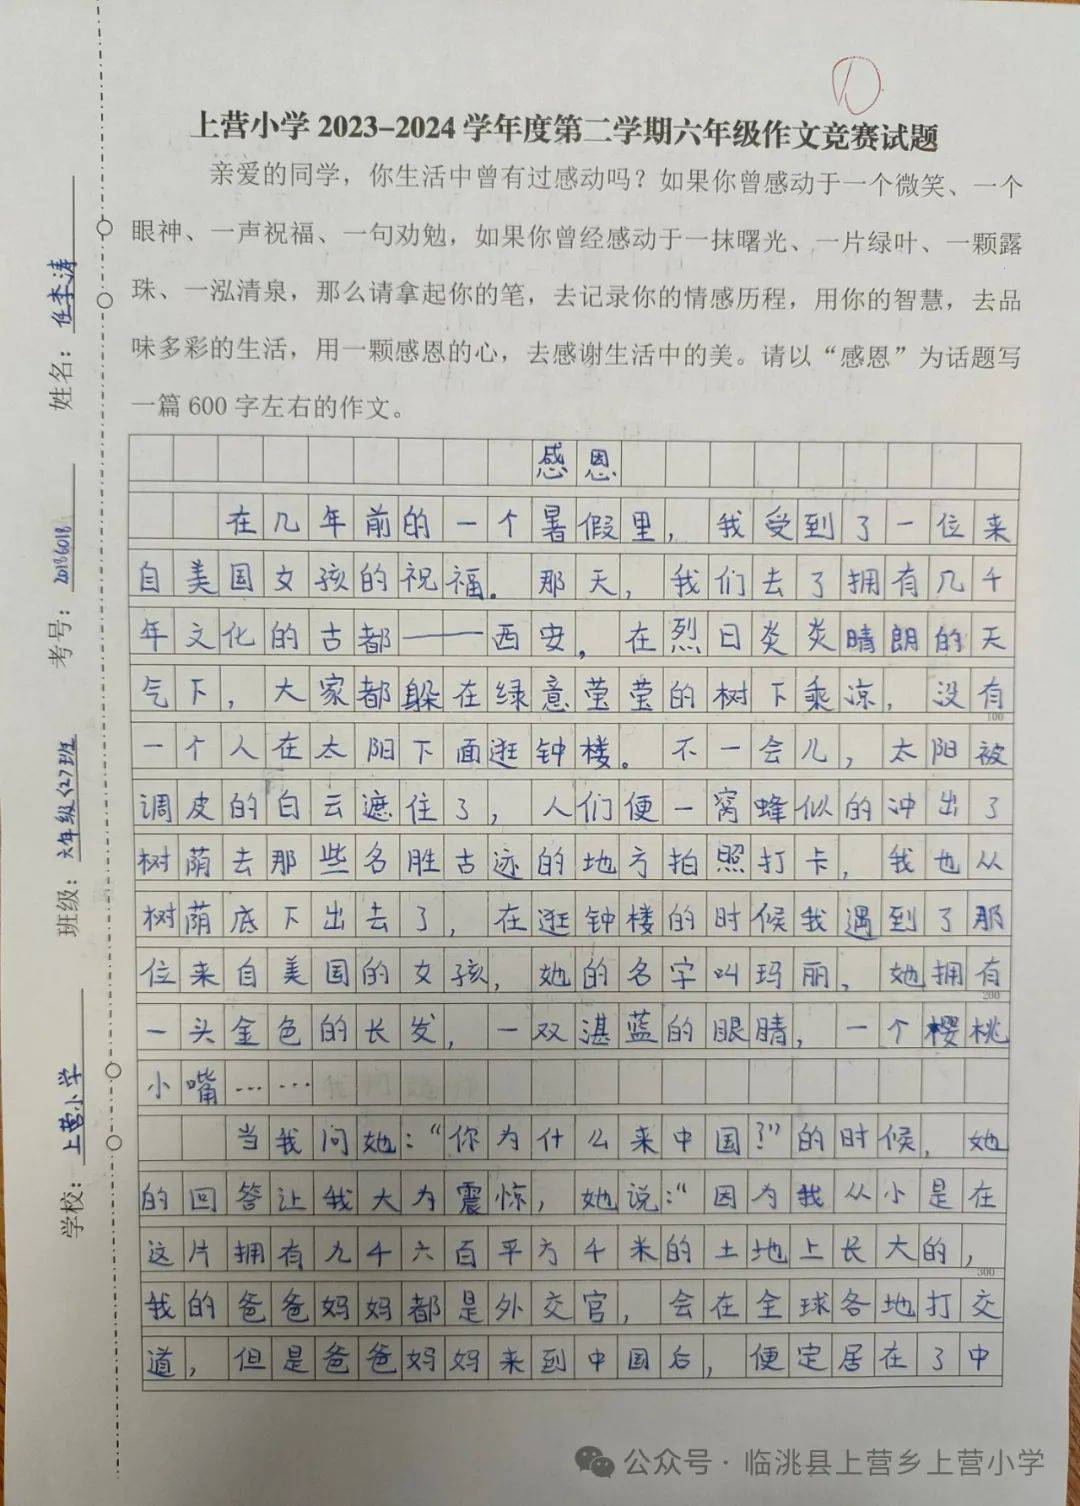 上营小学 2023-2024 学年度第二学期六年级作文竞赛试题
亲爱的同学，你生活中曾有过感动吗？如果你曾感动于一个微笑、一个
眼神、一声祝福、一句劝勉，如果你曾经感动于一抹曙光、一片绿叶、一颗露
珠、一泓清泉，那么请拿起你的笔，去记录你的情感历程，用你的智慧，去品
味多彩的生活，用一颗感恩的心，去感谢生活中的美。请以“感恩”为话题写
一篇 600 字左右的作文。
感恩
在几年前的一个暑假里，我受到了一位来
自美国女孩的祝福。那天，我们去了拥有几千
年文化的古都——西安，在烈日炎炎晴朗的天
气下，大家都躲在绿意莹莹的树下乘凉，没有
100
一个人在太阳下面逛钟楼。不一会儿，太阳被
调皮的白云遮住了，人们便一窝蜂似的冲出了
树荫去那些名胜古迹的地方拍照打卡，我也从
树荫底下出去了，在逛钟楼的时候我遇到了那
位来自美国的女孩，她的名字叫玛丽，她拥有
200
一头金色的长发，一双湛蓝的眼睛，一个樱桃
小嘴……
当我问她：“你为什么来中国？”的时候，她
的回答让我大为震惊，她说：“因为我从小是在
这片拥有九千六百平方千米的土地上长大的，
300
我的爸爸妈妈都是外交官，会在全球各地打交
道，但是爸爸妈妈来到中国后，便定居在了中
学校：上营小学
班级：六年级<2>班
考号：
姓名：任李涛
公众号·临洮县上营乡上营小学